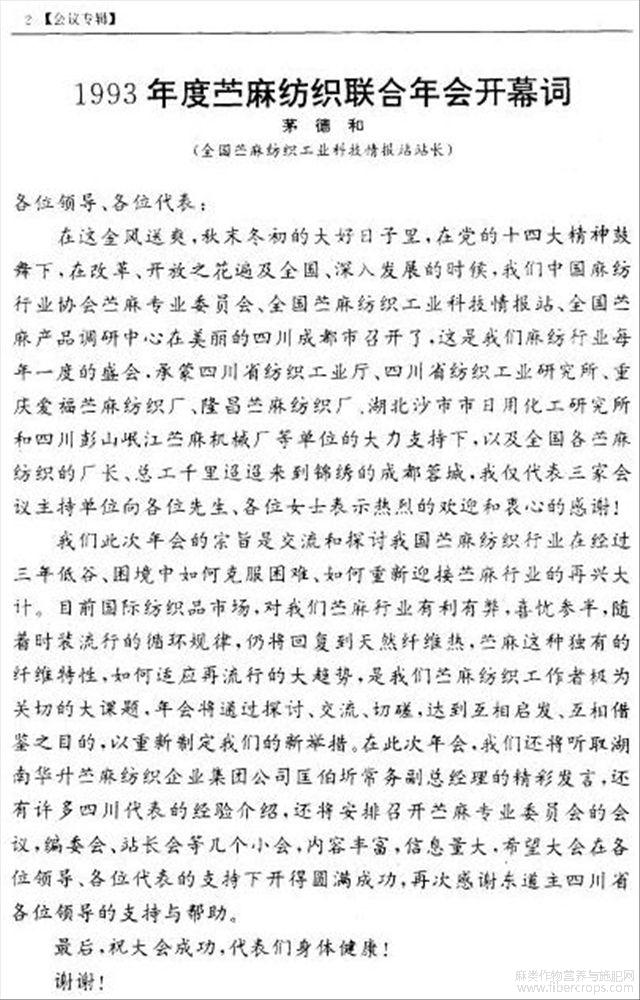 2 【会议专辑】
1993 年度苎麻纺织联合年会开幕词
茅 德 和
(全国苎麻纺织工业科技情报站站长)
各位领导、各位代表:
在这金风送爽,秋末冬初的大好日子里,在党的十四大精神鼓
舞下,在改革、开放之花遍及全国、深入发展的时候,我们中国麻纺
行业协会苎麻专业委员会、全国苎麻纺织工业科技情报站、全国苎
麻产品调研中心在美丽的四川成都市召开了,这是我们麻纺行业每
年一度的盛会,承蒙四川省纺织工业厅、四川省纺织工业研究所、重
庆爱福苎麻纺织厂、隆昌苎麻纺织厂、湖北沙市市日用化工研究所
和四川彭山岷江苎麻机械厂等单位的大力支持下,以及全国各苎麻
纺织的厂长、总工千里迢迢来到锦绣的成都蓉城,我仅代表三家会
议主持单位向各位先生、各位女士表示热烈的欢迎和衷心的感谢!
我们此次年会的宗旨是交流和探讨我国苎麻纺织行业在经过
三年低谷、困境中如何克服困难、如何重新迎接苎麻行业的再兴大
计。目前国际纺织品市场,对我们苎麻行业有利有弊,喜忧参半,随
着时装流行的循环规律,仍将回复到天然纤维热,苎麻这种独有的
纤维特性,如何适应再流行的大趋势,是我们苎麻纺织工作者极为
关切的大课题,年会将通过探讨、交流、切磋,达到互相启发、互相借
鉴之目的,以重新制定我们的新举措。在此次年会,我们还将听取湖
南华升苎麻纺织企业集团公司匡伯圻常务副总经理的精彩发言,还
有许多四川代表的经验介绍,还将安排召开苎麻专业委员会的会
议,编委会、站长会等几个小会,内容丰富,信息量大,希望大会在各
位领导、各位代表的支持下开得圆满成功,再次感谢东道主四川省
各位领导的支持与帮助。
最后,祝大会成功,代表们身体健康!
谢谢!
麻类作物营养与施肥网
www.fibercrops.com